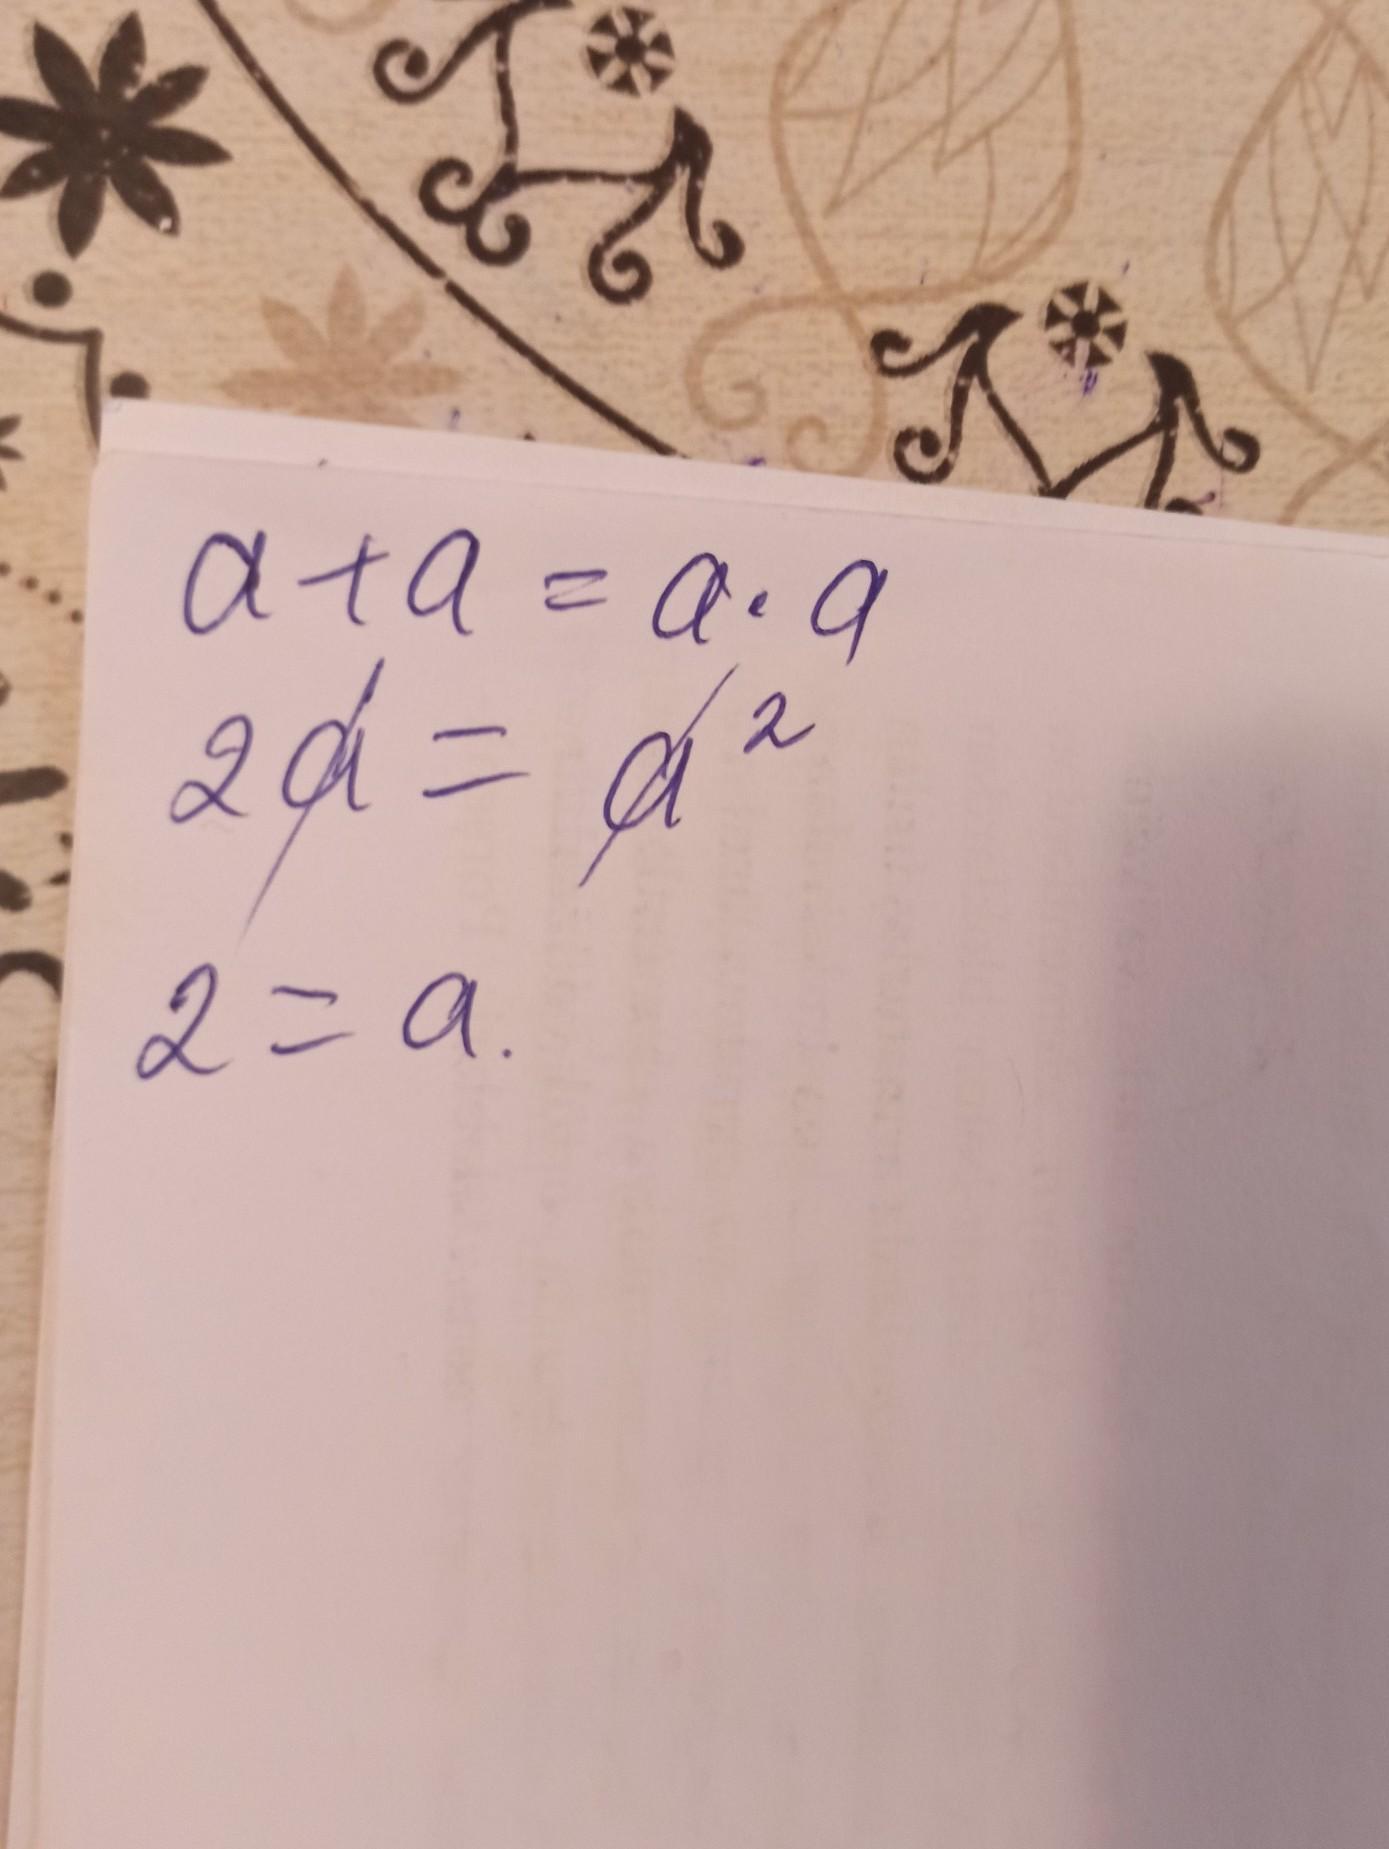 a + a = a · a
2a = a²
2 = a.